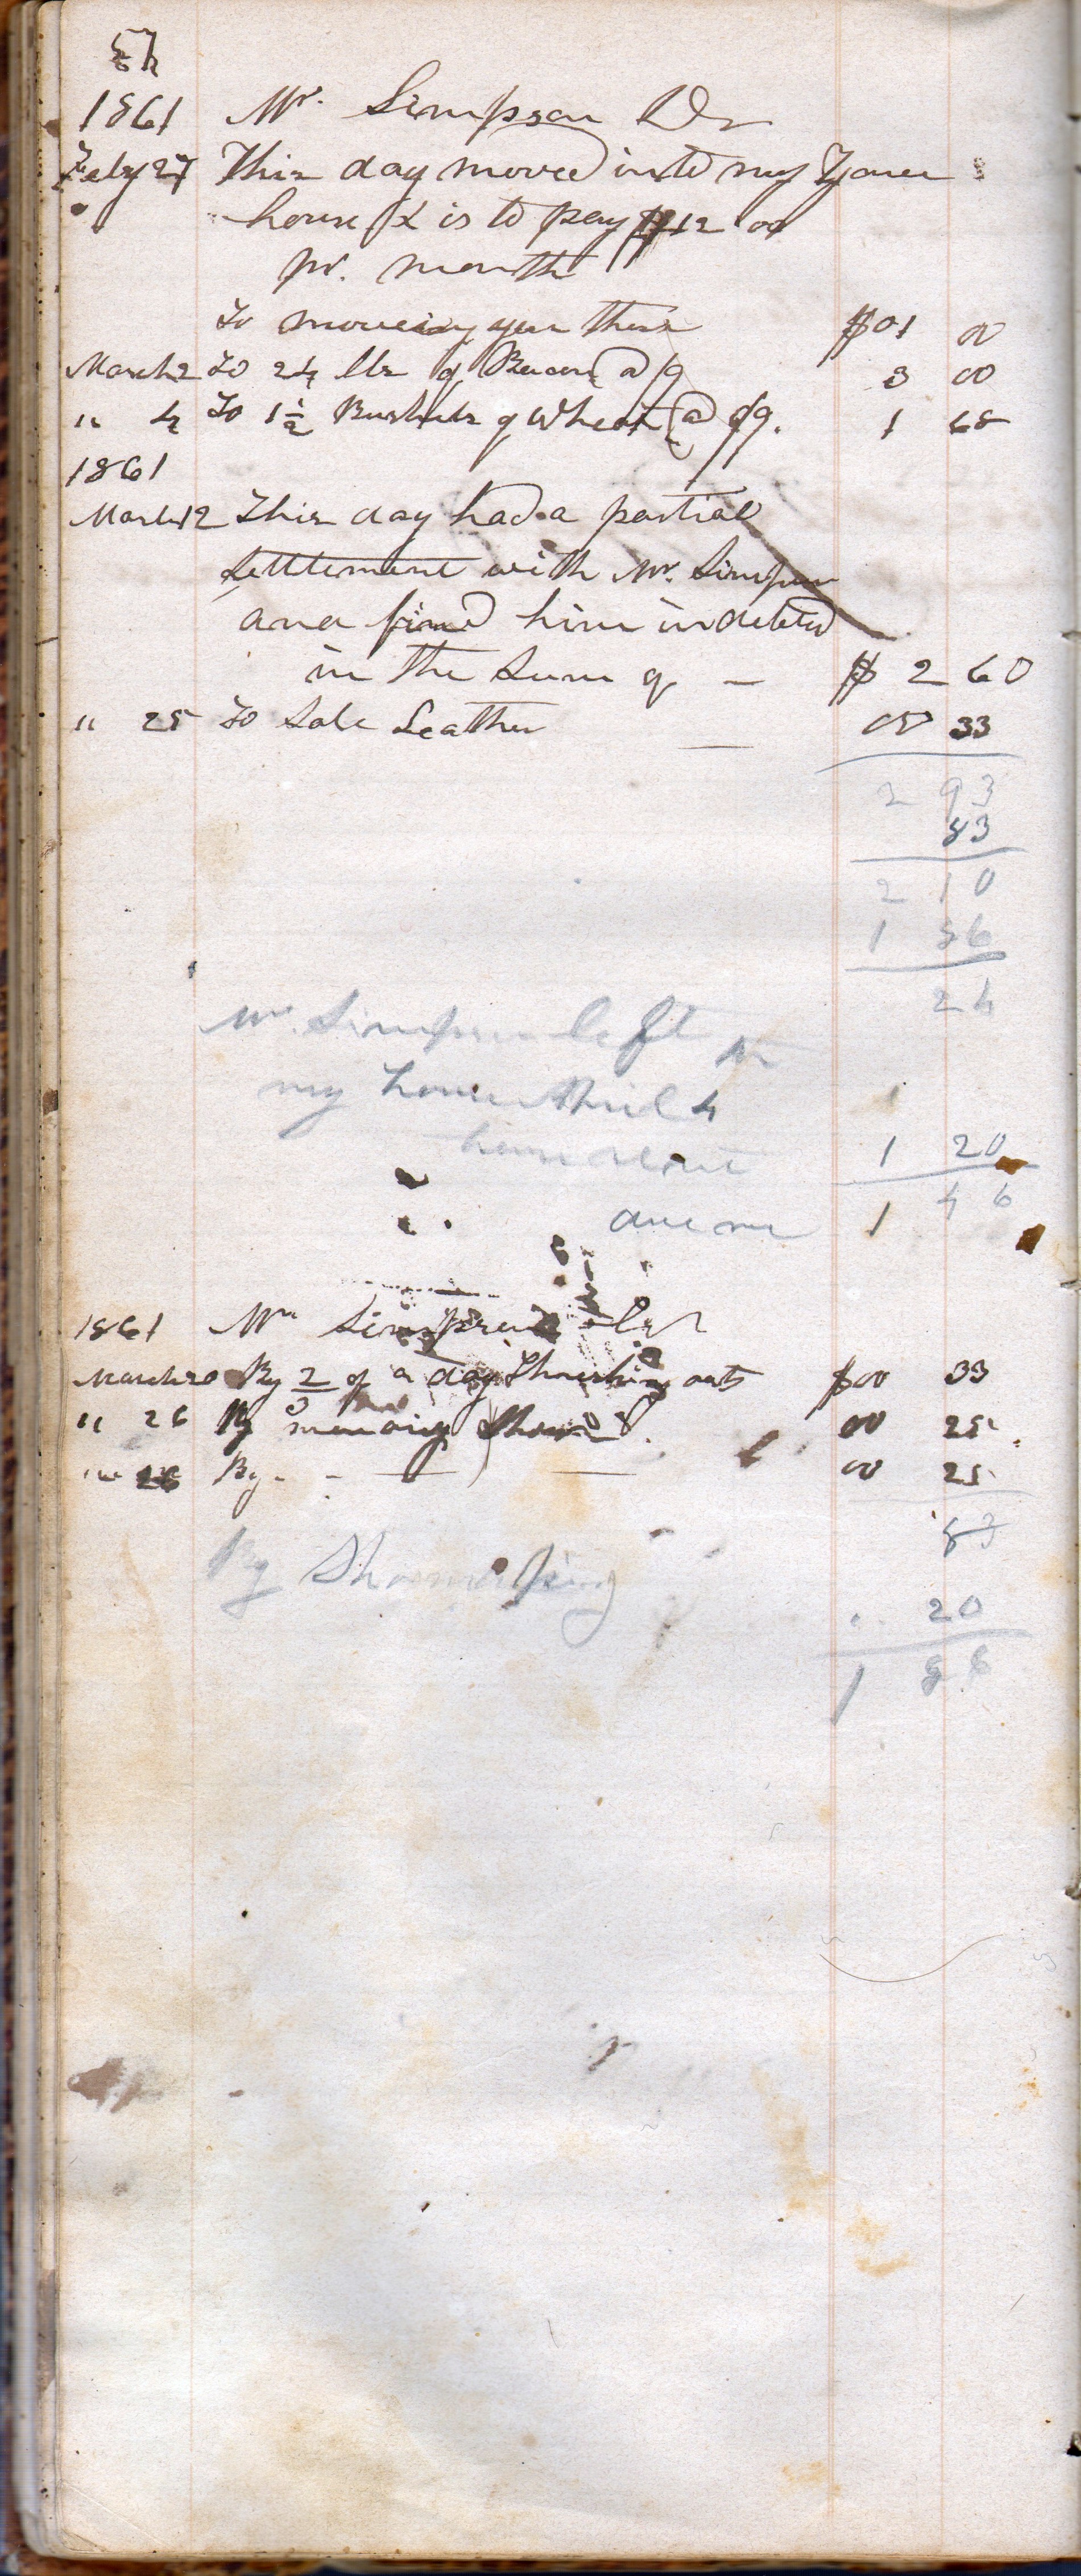 54
1861 Mr. Simpson Dr
Feby 27 This day moved into my
house & is to pay $12 00
pr. month
To moveing you there $01 00
March 2 To 24 lbs of Bacon @ 3 00
" 4 To 1 1/2 Bushels of Wheat @ 1 68
1861
March 12 This day had a partial
settlement with Mr. Simpson
and find him indebted
in the Sum of — $ 2 60
" 25 To Sole Leather — 00 33
2 93
83
2 10
1 86
24
Mr. Simpson left
my house April 4
house rent 1 20
due me 1 46
1861 Mr Simpson Cr
March 20 By 2/3 of a day Thrashing oats $00 33
" 26 By mending Shoes 00 25
" 26 By - - — — 00 25
83
By Shoemaking
20
1 86